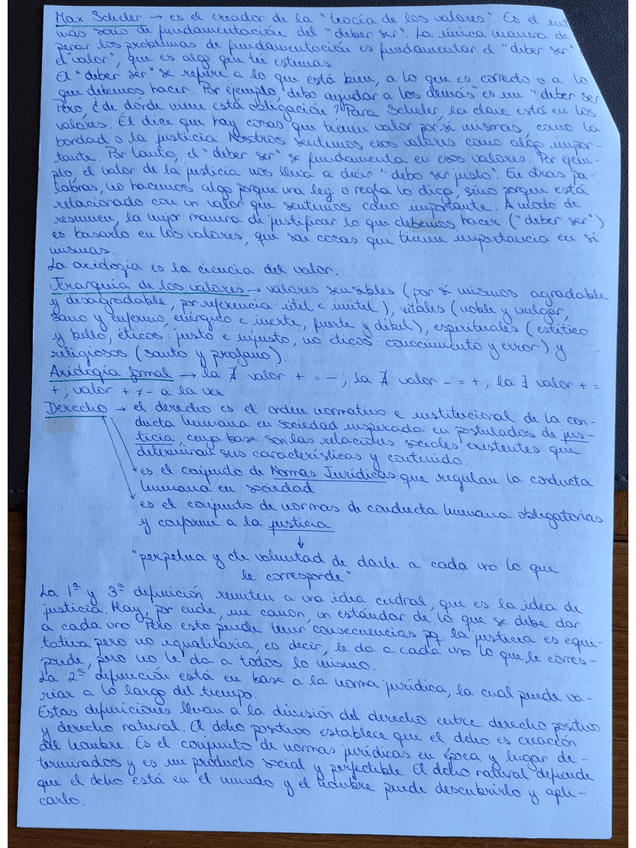 Max Scheler → es el creador de la "teoría de los valores". Es el
más serio de fundamentación del "deber ser". La única manera de
perar los problemas de fundamentación es fundamentar el "deber ser"
el "valor", que es algo que tú estimas.
El "deber ser" se refiere a lo que está bien, a lo que es correcto o a lo
que debemos hacer. Por ejemplo "debo ayudar a los demás" es un "deber ser
Pero, ¿de dónde viene esta obligación? Para Scheler, la clave está en los
valores. Él dice que hay cosas que tienen valor por sí mismas, como la
bondad o la justicia. Nosotros sentimos esos valores como algo impor-
tante. Por tanto, el "deber ser" se fundamenta en esos valores. Por ejem-
plo, el valor de la justicia nos lleva a decir "debo ser justo". En otras pa-
labras, no hacemos algo porque una ley o regla lo diga, sino porque está
relacionado con un valor que sentimos como importante. A modo de
resumen, la mejor manera de justificar lo que debemos hacer ("deber ser")
es basarlo en los valores, que son cosas que tienen importancia en sí
mismas.
La axiología es la ciencia del valor.
Jerarquía de los valores → valores sensibles (por sí mismos: agradable
y desagradable, por referencia: útil e inútil), vitales (noble y vulgar,
sano y enfermo, enérgico e inerte, fuerte y débil), espirituales (estético
y bello, éticos: justo e injusto, no éticos: conocimiento y error) y
religiosos (santo y profano).
Axiología formal → la ∄ valor + = -; la ∄ valor - = +; la ∃ valor + =
+; valor + ≠ - a la vez
Derecho → el derecho es el orden normativo e institucional de la con-
ducta humana en sociedad inspirada en postulados de jus-
ticia, cuya base son las relaciones sociales existentes que
determinan sus características y contenido.
es el conjunto de Normas Jurídicas que regulan la conducta
humana en sociedad
es el conjunto de normas de conducta humana obligatorias
y conforme a la justicia
↓
"perpetua y cte voluntad de darle a cada uno lo que
le corresponde"
La 1ª y 3ª definición remiten a una idea central, que es la idea de
justicia. Hay, por ende, un canon, un estándar de lo que se debe dar
a cada uno. Pero esto puede tener consecuencias pq la justicia es equi-
tativa pero no igualitaria, es decir, le da a cada uno lo que le corres-
ponde, pero no le da a todos lo mismo.
La 2ª definición está en base a la norma jurídica, la cual puede va-
riar a lo largo del tiempo.
Estas definiciones llevan a la división del derecho entre derecho positivo
y derecho natural. El dcho positivo establece que el dcho es creación
del hombre. Es el conjunto de normas jurídicas en época y lugar de-
terminados y es un producto social y perfectible. El dcho natural defiende
que el dcho está en el mundo y el hombre puede descubrirlo y apli-
carlo.